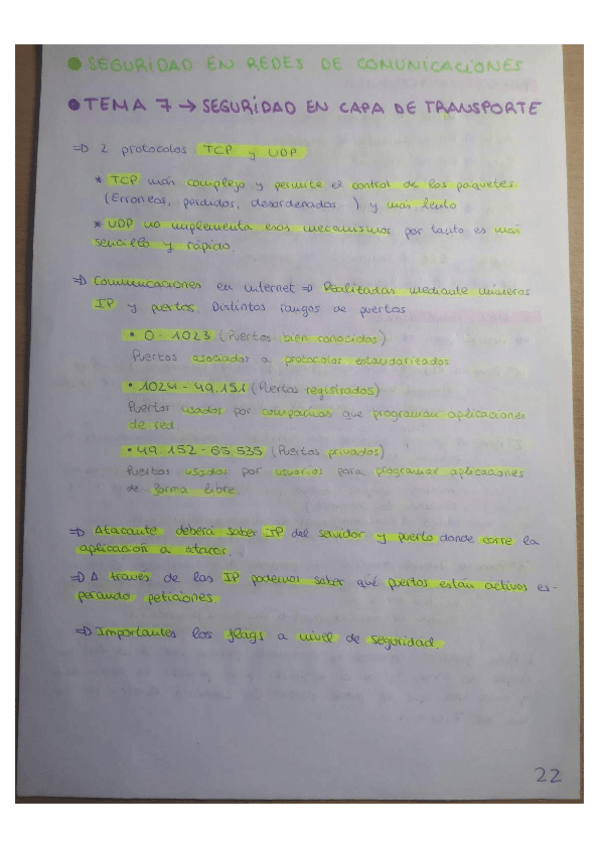 ● SEGURIDAD EN REDES DE COMUNICACIONES
● TEMA 7 → SEGURIDAD EN CAPA DE TRANSPORTE
⇒ 2 protocolos TCP y UDP
* TCP más complejo y permite el control de los paquetes
(Erroneos, perdidos, desordenados ) y más lento
* UDP no implementa esos mecanismos por tanto es más
sencillo y rápido.
⇒ Comunicaciones en internet ⇒ Realizadas mediante números
IP y puertos. Distintos rangos de puertos
• 0 - 1023 (Puertos bien conocidos)
Puertos asociados a protocolos estandaritados
• 1024 - 49.151 (Puertos registrados)
Puertos usados por compañías que programan aplicaciones
de red.
• 49.152 - 65.535 (Puertos privados)
Puertos usados por usuarios para programar aplicaciones
de forma libre.
⇒ Atacante deberá saber IP del servidor y puerto donde corre la
aplicación a atacar.
⇒ A través de las IP podemos saber qué puertos están activos es-
perando peticiones.
⇒ Importantes los flags a nivel de seguridad.
22